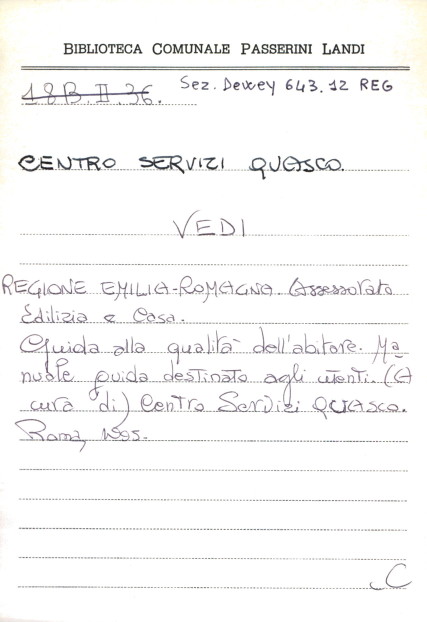 BIBLIOTECA COMUNALE PASSERINI LANDI
18B.II.36. Sez. Dewey 643.12 REG
CENTRO SERVIZI QUASCO.
VEDI
REGIONE EMILIA-ROMAGNA. Assessorato
Edilizia e Casa.
Guida alla qualità dell'abitare. Ma
nuale guida destinato agli utenti. (A
cura di) Centro Servizi QUASCO.
Roma,
C